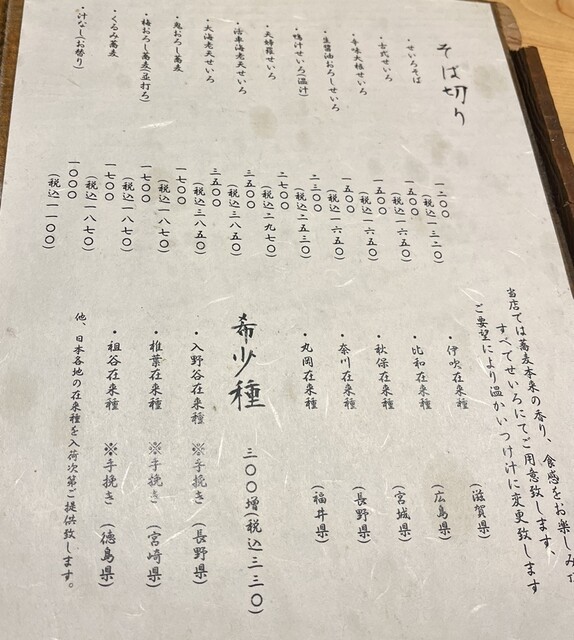 そば切り
・せいろそば 一二〇〇 (税込一三二〇)
・古式せいろ 一五〇〇 (税込一六五〇)
・辛味大根せいろ 一五〇〇 (税込一六五〇)
・生醤油おろしせいろ 一五〇〇 (税込一六五〇)
・鴨汁せいろ(温汁) 二三〇〇 (税込二五三〇)
・天婦羅せいろ 二七〇〇 (税込二九七〇)
・活車海老天せいろ 三五〇〇 (税込三八五〇)
・大海老天せいろ 三五〇〇 (税込三八五〇)
・鬼おろし蕎麦 一七〇〇 (税込一八七〇)
・梅おろし蕎麦 一七〇〇 (税込一八七〇)
・くるみ蕎麦 一七〇〇 (税込一八七〇)
・汁なし(お替り) 一〇〇〇 (税込一一〇〇)
当店では蕎麦本来の香り、食感をお楽しみ
すべてせいろにてご用意致します、
ご要望により温かいつけ汁に変更致します
・伊吹在来種 (滋賀県)
・比和在来種 (広島県)
・秋保在来種 (宮城県)
・奈川在来種 (長野県)
・丸岡在来種 (福井県)
希少種 三〇〇増(税込三三〇)
・入野谷在来種 ※手挽き (長野県)
・椎葉在来種 ※手挽き (宮崎県)
・祖谷在来種 ※手挽き (徳島県)
他、日本各地の在来種を入荷次第ご提供致します。